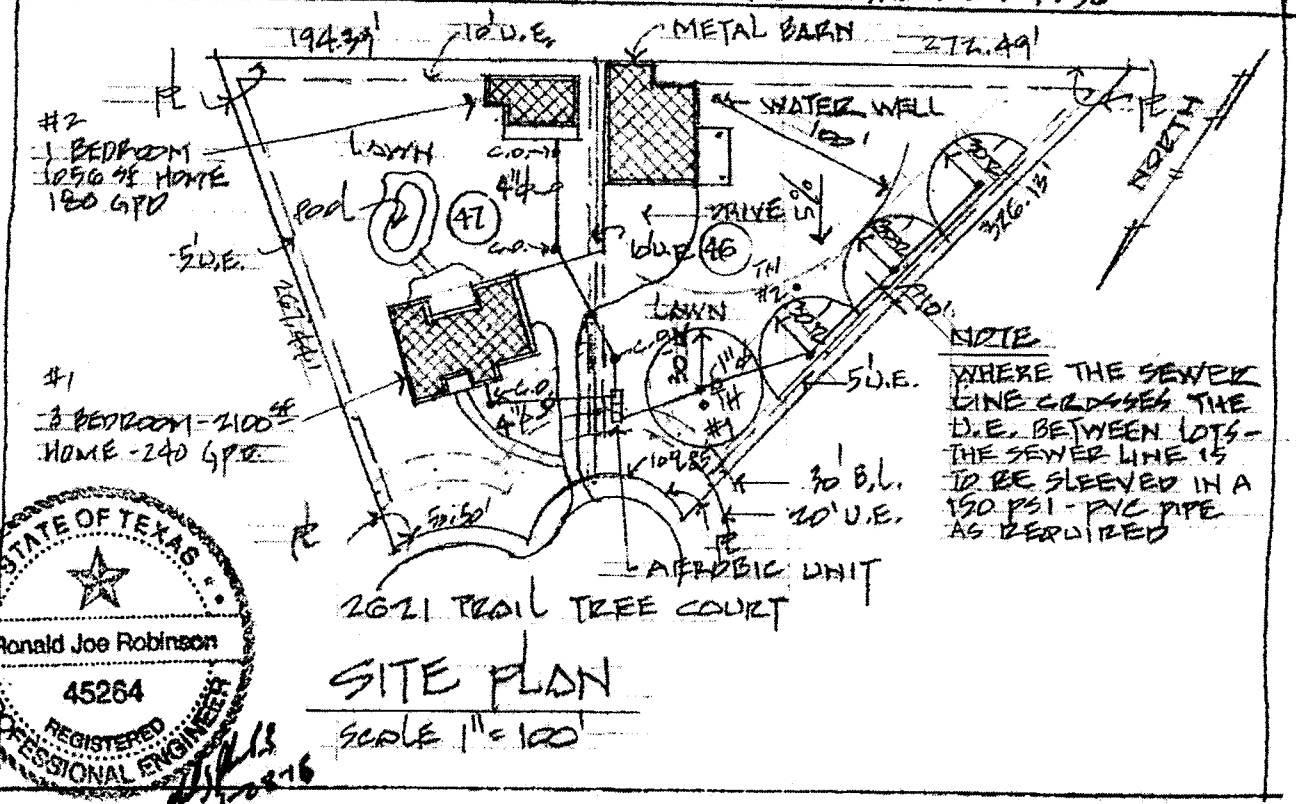 194.39'
10' U.E.
METAL BARN
272.49'
WATER WELL
100'
NORTH
#2
1 BEDROOM
1056 SF HOME
180 GPD
LAWN
C.O.
4"
Pool
47
C.O.
DRIVE
5%
46
30'R
326.13'
5' U.E.
267.44'
TH
#2
30'R
10'
LAWN
30'R
C.O.
1"
TH
#1
5' U.E.
#1
3 BEDROOM - 2100 SF
HOME - 240 GPD
C.O.
4"
NOTE
WHERE THE SEWER
LINE CROSSES THE
U.E. BETWEEN LOTS -
THE SEWER LINE IS
TO BE SLEEVED IN A
150 PSI - PVC PIPE
AS REQUIRED
109.85
30' B.L.
20' U.E.
50.50'
AEROBIC UNIT
2621 TRAIL TREE COURT
SITE PLAN
SCALE 1" = 100'
STATE OF TEXAS
Ronald Joe Robinson
45264
REGISTERED
PROFESSIONAL ENGINEER